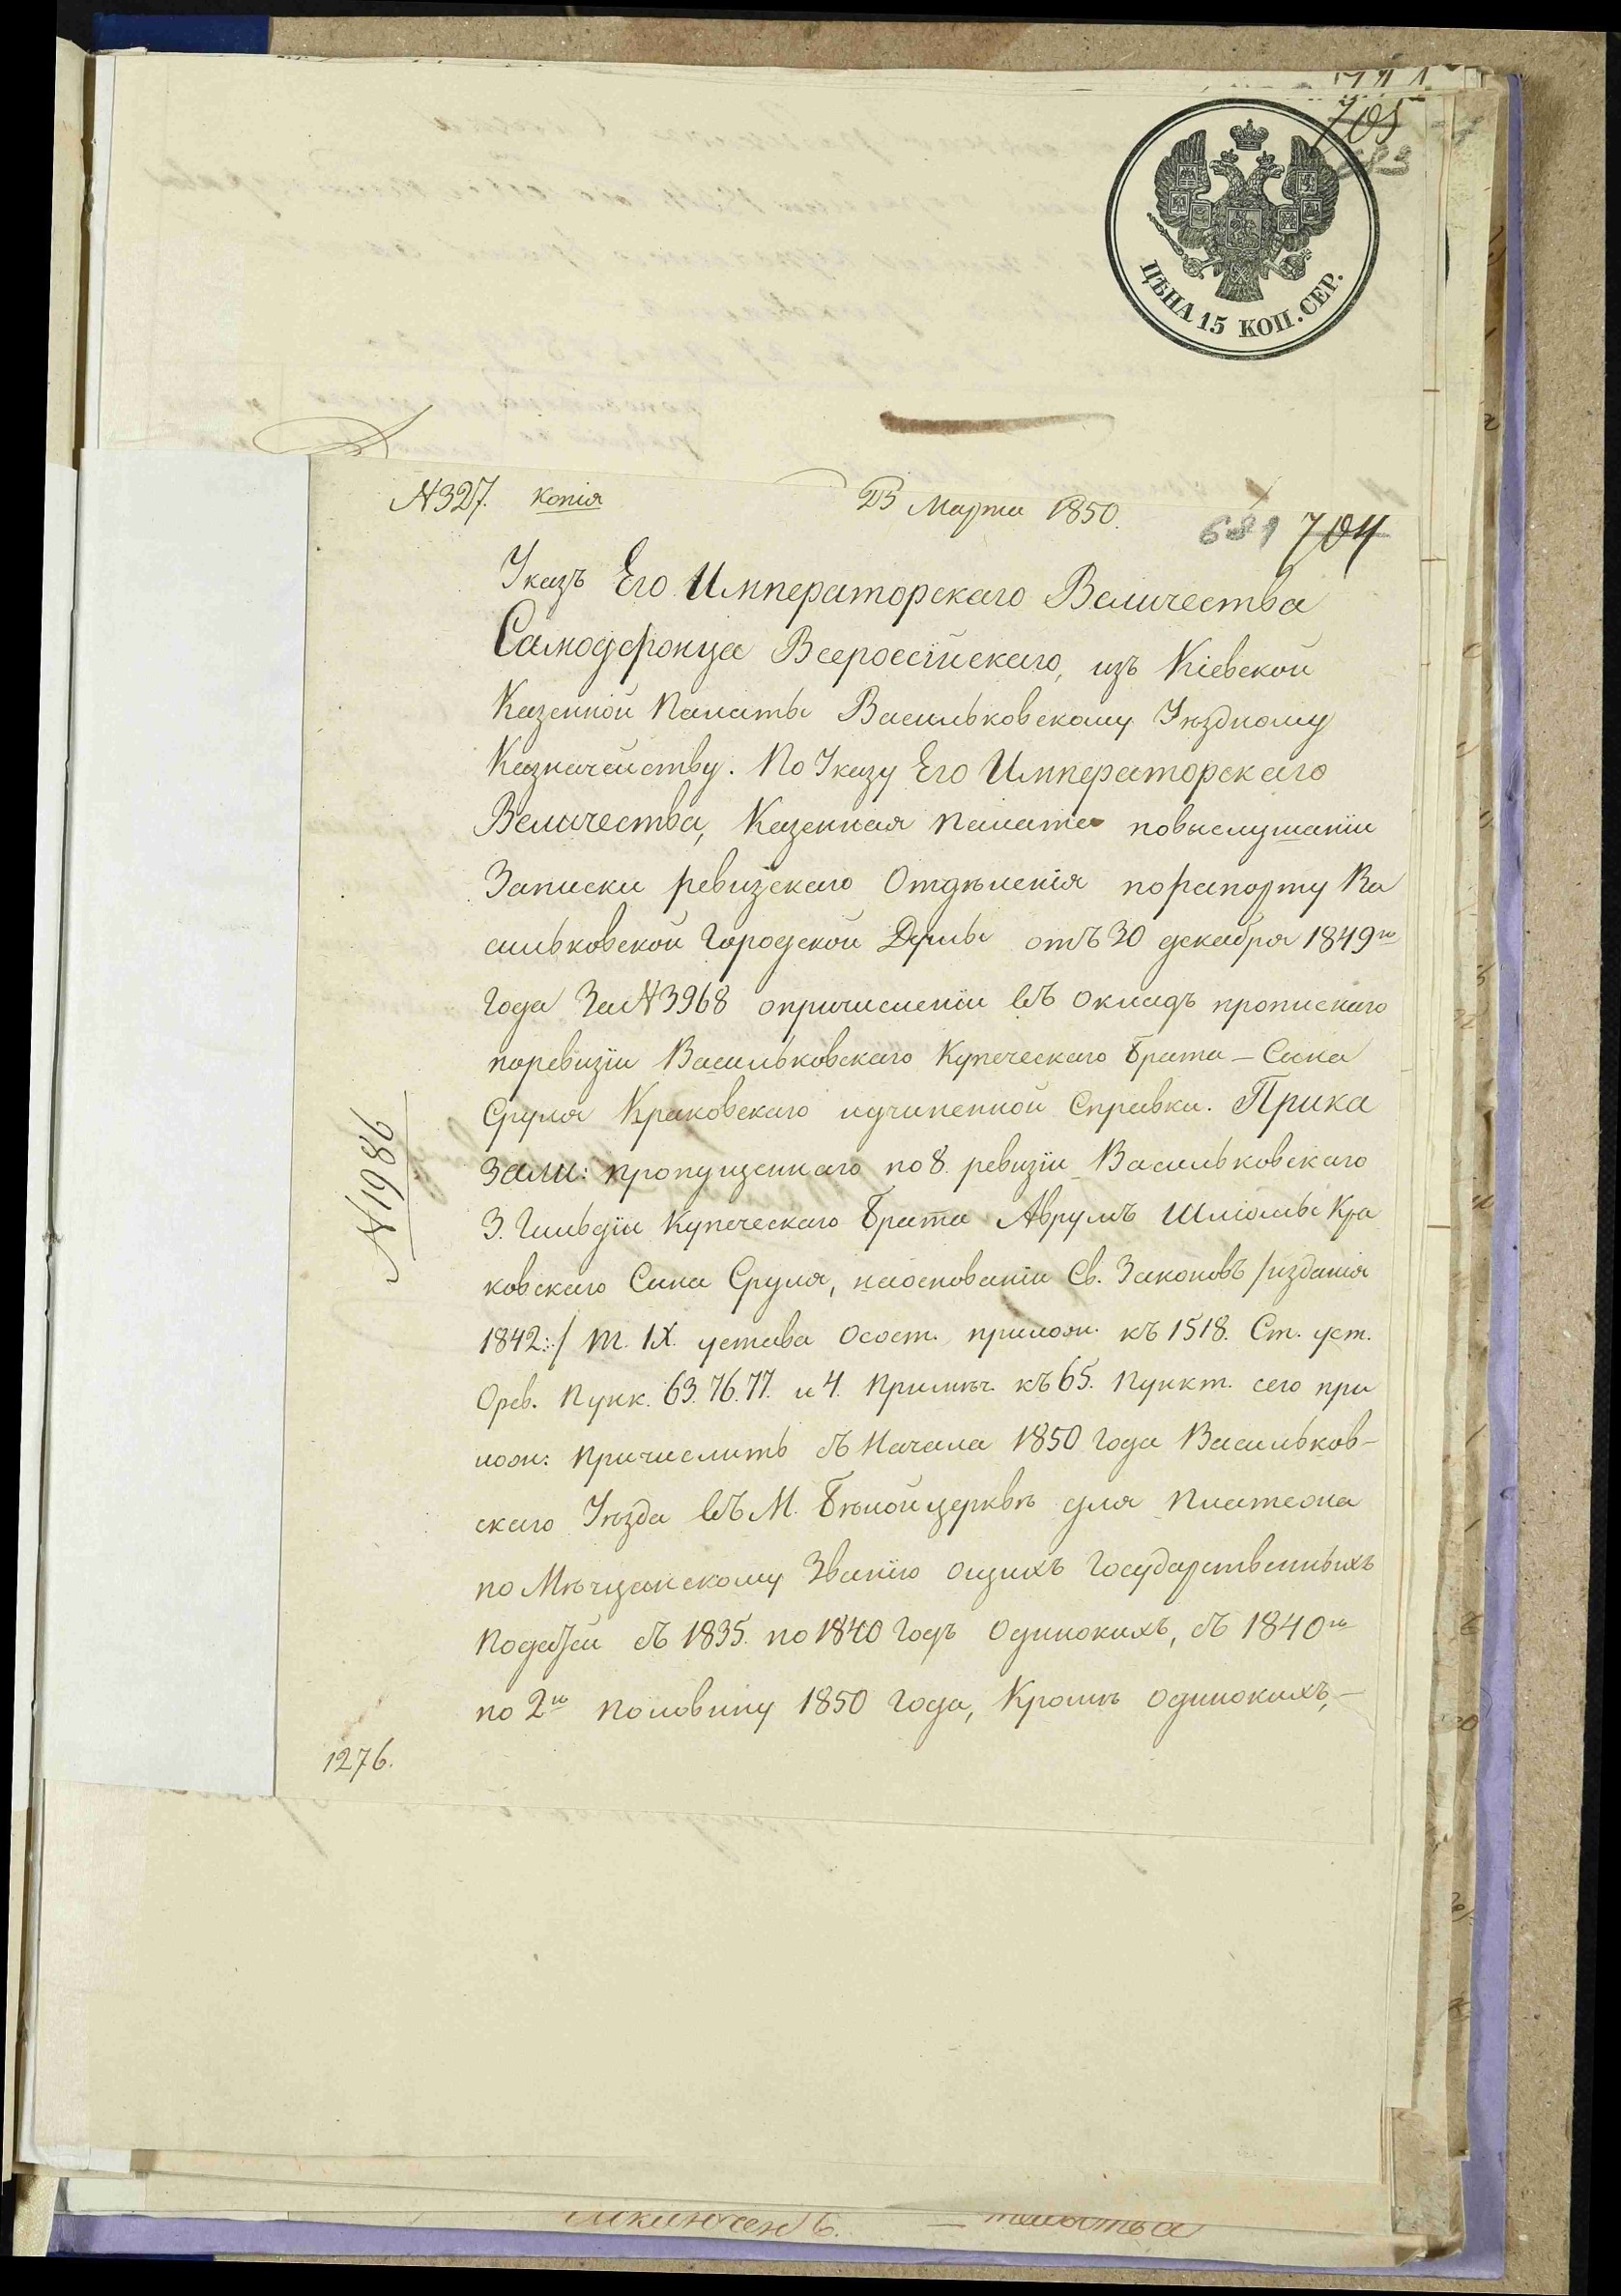 705
ЦѢНА 15 КОП. СЕР.
N327. Копія
23 Марта 1850.
681 704
Указъ Его Императорскаго Величества
Самодержца Всероссійскаго, изъ Кіевской
Казенной Палаты Васильковскому Уѣздному
Казначейству. По Указу Его Императорскаго
Величества, Казенная Палата повыслушаніи
Записки ревизскаго Отдѣленія порапорту Ва
сильковской Городской Думы отъ 30 декабря 1849го
Года За N3968 опричисленіи въ окладъ прописнаго
поревизіи Васильковскаго Купеческаго брата – Сына
Сруля Краковскаго иучиненной Справки. Прика
зали: пропущеннаго по 8. ревизіи Васильковскаго
3. Гильдіи Купеческаго брата Аврумъ Шліомы Кра
ковскаго Сына Сруля, наоснованіи Св. Законовъ /изданія
1842:/ т. IX. устава Осост. прилож. къ 1518. Ст. уст.
Орев. Пунк. 63. 76. 77. и 4. Примѣч. къ 65. Пункт. сего при
лож: Причислить съ Начала 1850 Года Васильков-
скаго Уѣзда въ М. Бѣлойцерквѣ для Платежа
по Мѣщанскому Званію Ощихъ Государственныхъ
Податей съ 1835. по 1840 Годъ Одинокихъ, съ 1840го
по 2ю Половину 1850 Года, Кромѣ Одинокихъ, –
N1986
1276.